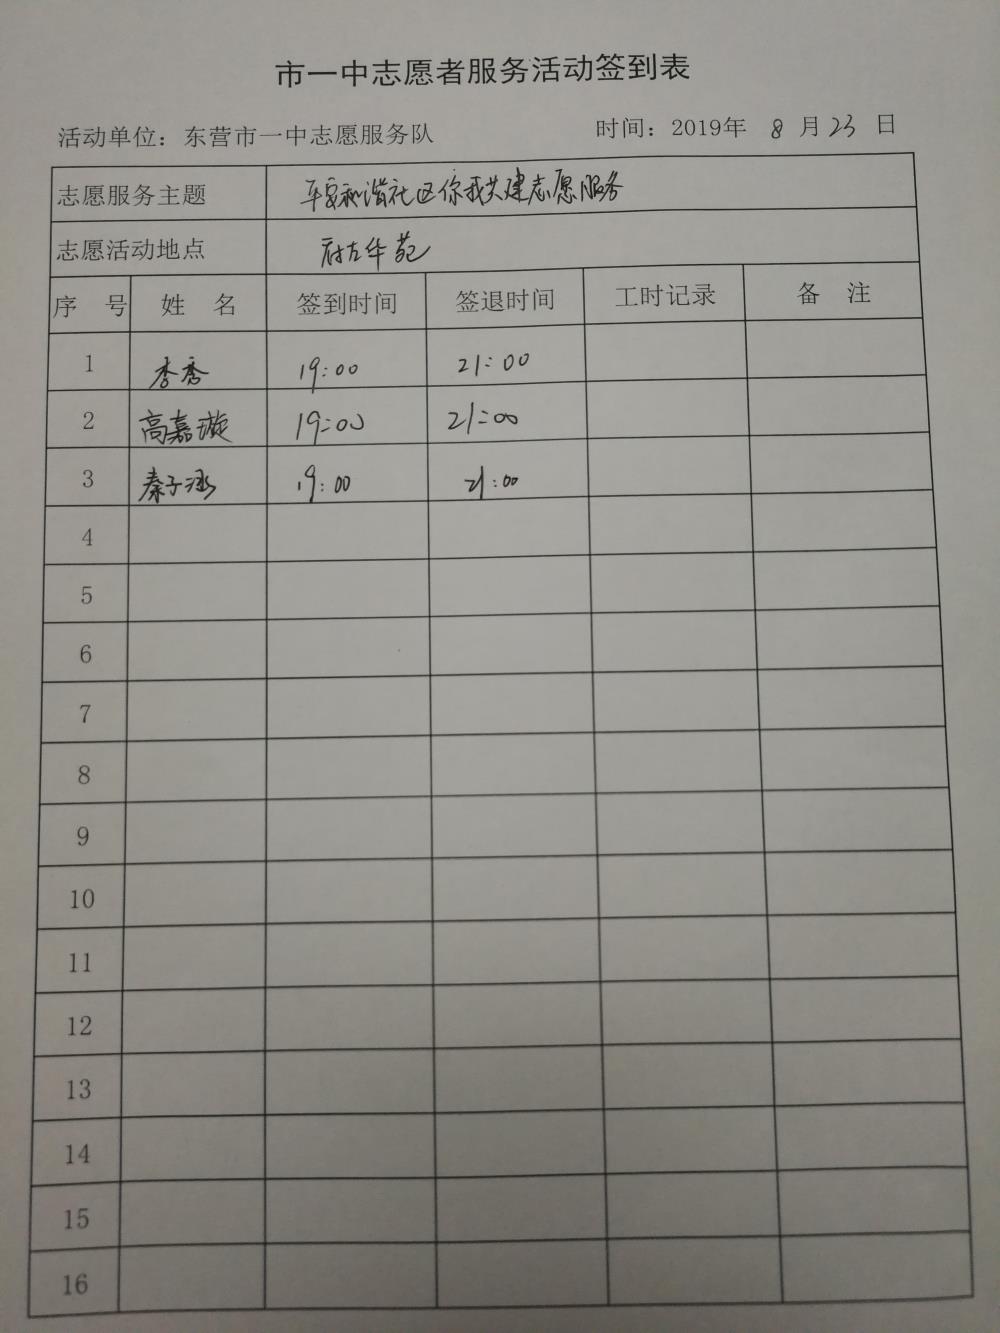 市一中志愿者服务活动签到表
活动单位：东营市一中志愿服务队 时间：2019年 8 月 23 日
志愿服务主题 平安和谐社区你我共建志愿服务
志愿活动地点 府左华苑
序 号 姓 名 签到时间 签退时间 工时记录 备 注
1 李秀 19:00 21:00
2 高嘉璇 19:00 21:00
3 秦子涵 19:00 21:00
4
5
6
7
8
9
10
11
12
13
14
15
16